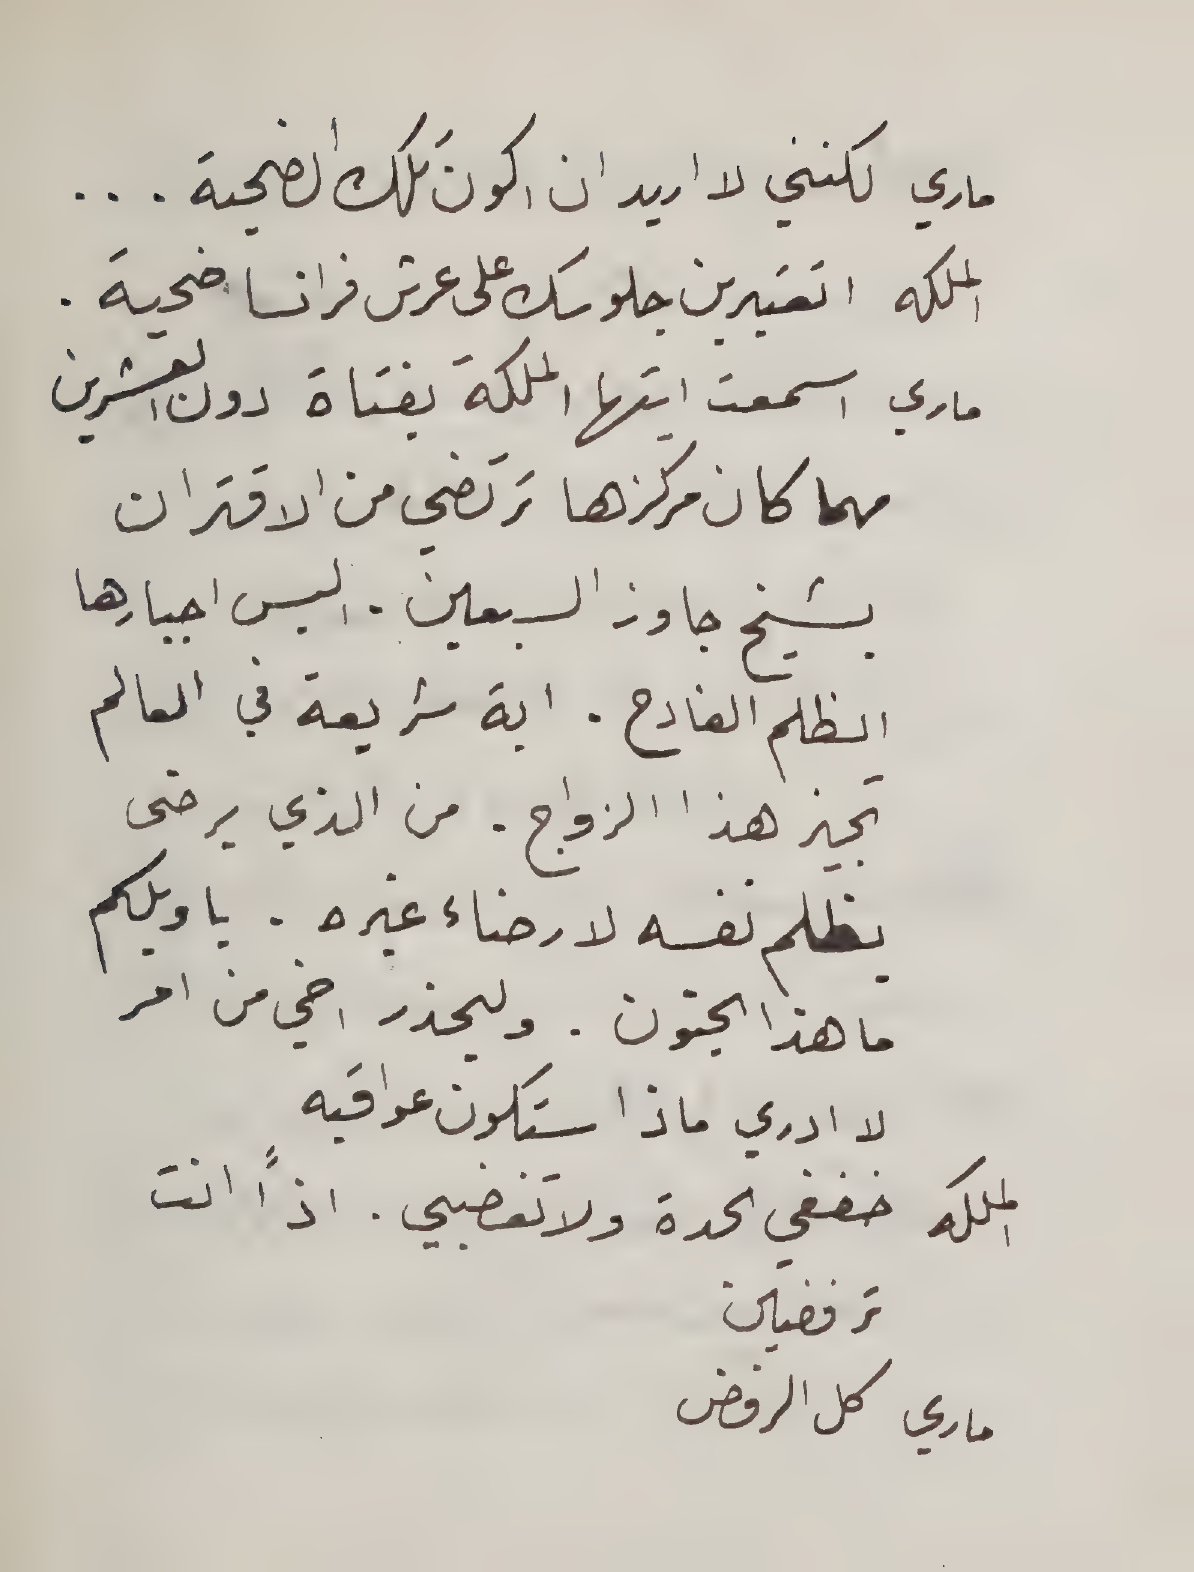 ماري لكنني لا اريد ان اكون تلك الضحية . . .
الملكه اتعتبرين جلوسك على عرش فرانسا ضحية .
ماري اسمعت ايتها الملكة بفتاة دون العشرين
مهما كان مركزها ترتضي من الاقتران
بشيخ جاوز السبعين . اليس اجبارها
الظلم الفادح . اية شريعة في العالم
تجيز هذا الزواج . من الذي يرضى
يظلم نفسه لارضاء غيره . يا ويلكم
ما هذا الجنون . وليحذر اخي من امر
لا ادري ماذا ستكون عواقبه
الملكه خففي الحدة ولا تغضبي . اذاً انت
ترفضين
ماري كل الرفض